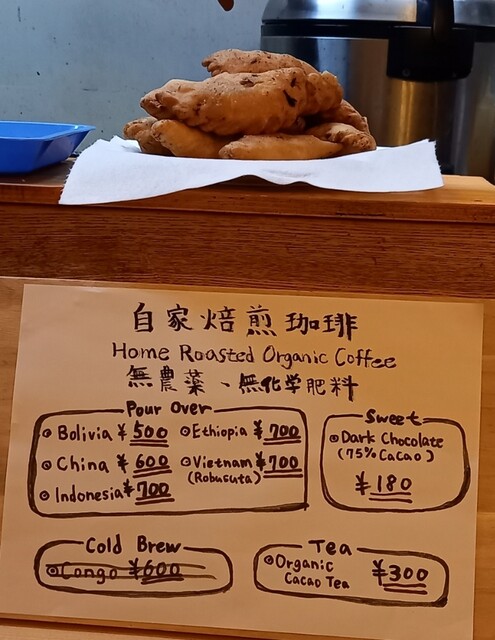 自家焙煎珈琲
Home Roasted Organic Coffee
無農薬、無化学肥料
Pour Over
Bolivia ¥500
Ethiopia ¥700
China ¥600
Vietnam ¥700
(Robusuta)
Indonesia ¥700
Sweet
Dark Chocolate
(75% Cacao)
¥180
Cold Brew
Congo ¥600
Tea
Organic
Cacao Tea ¥300